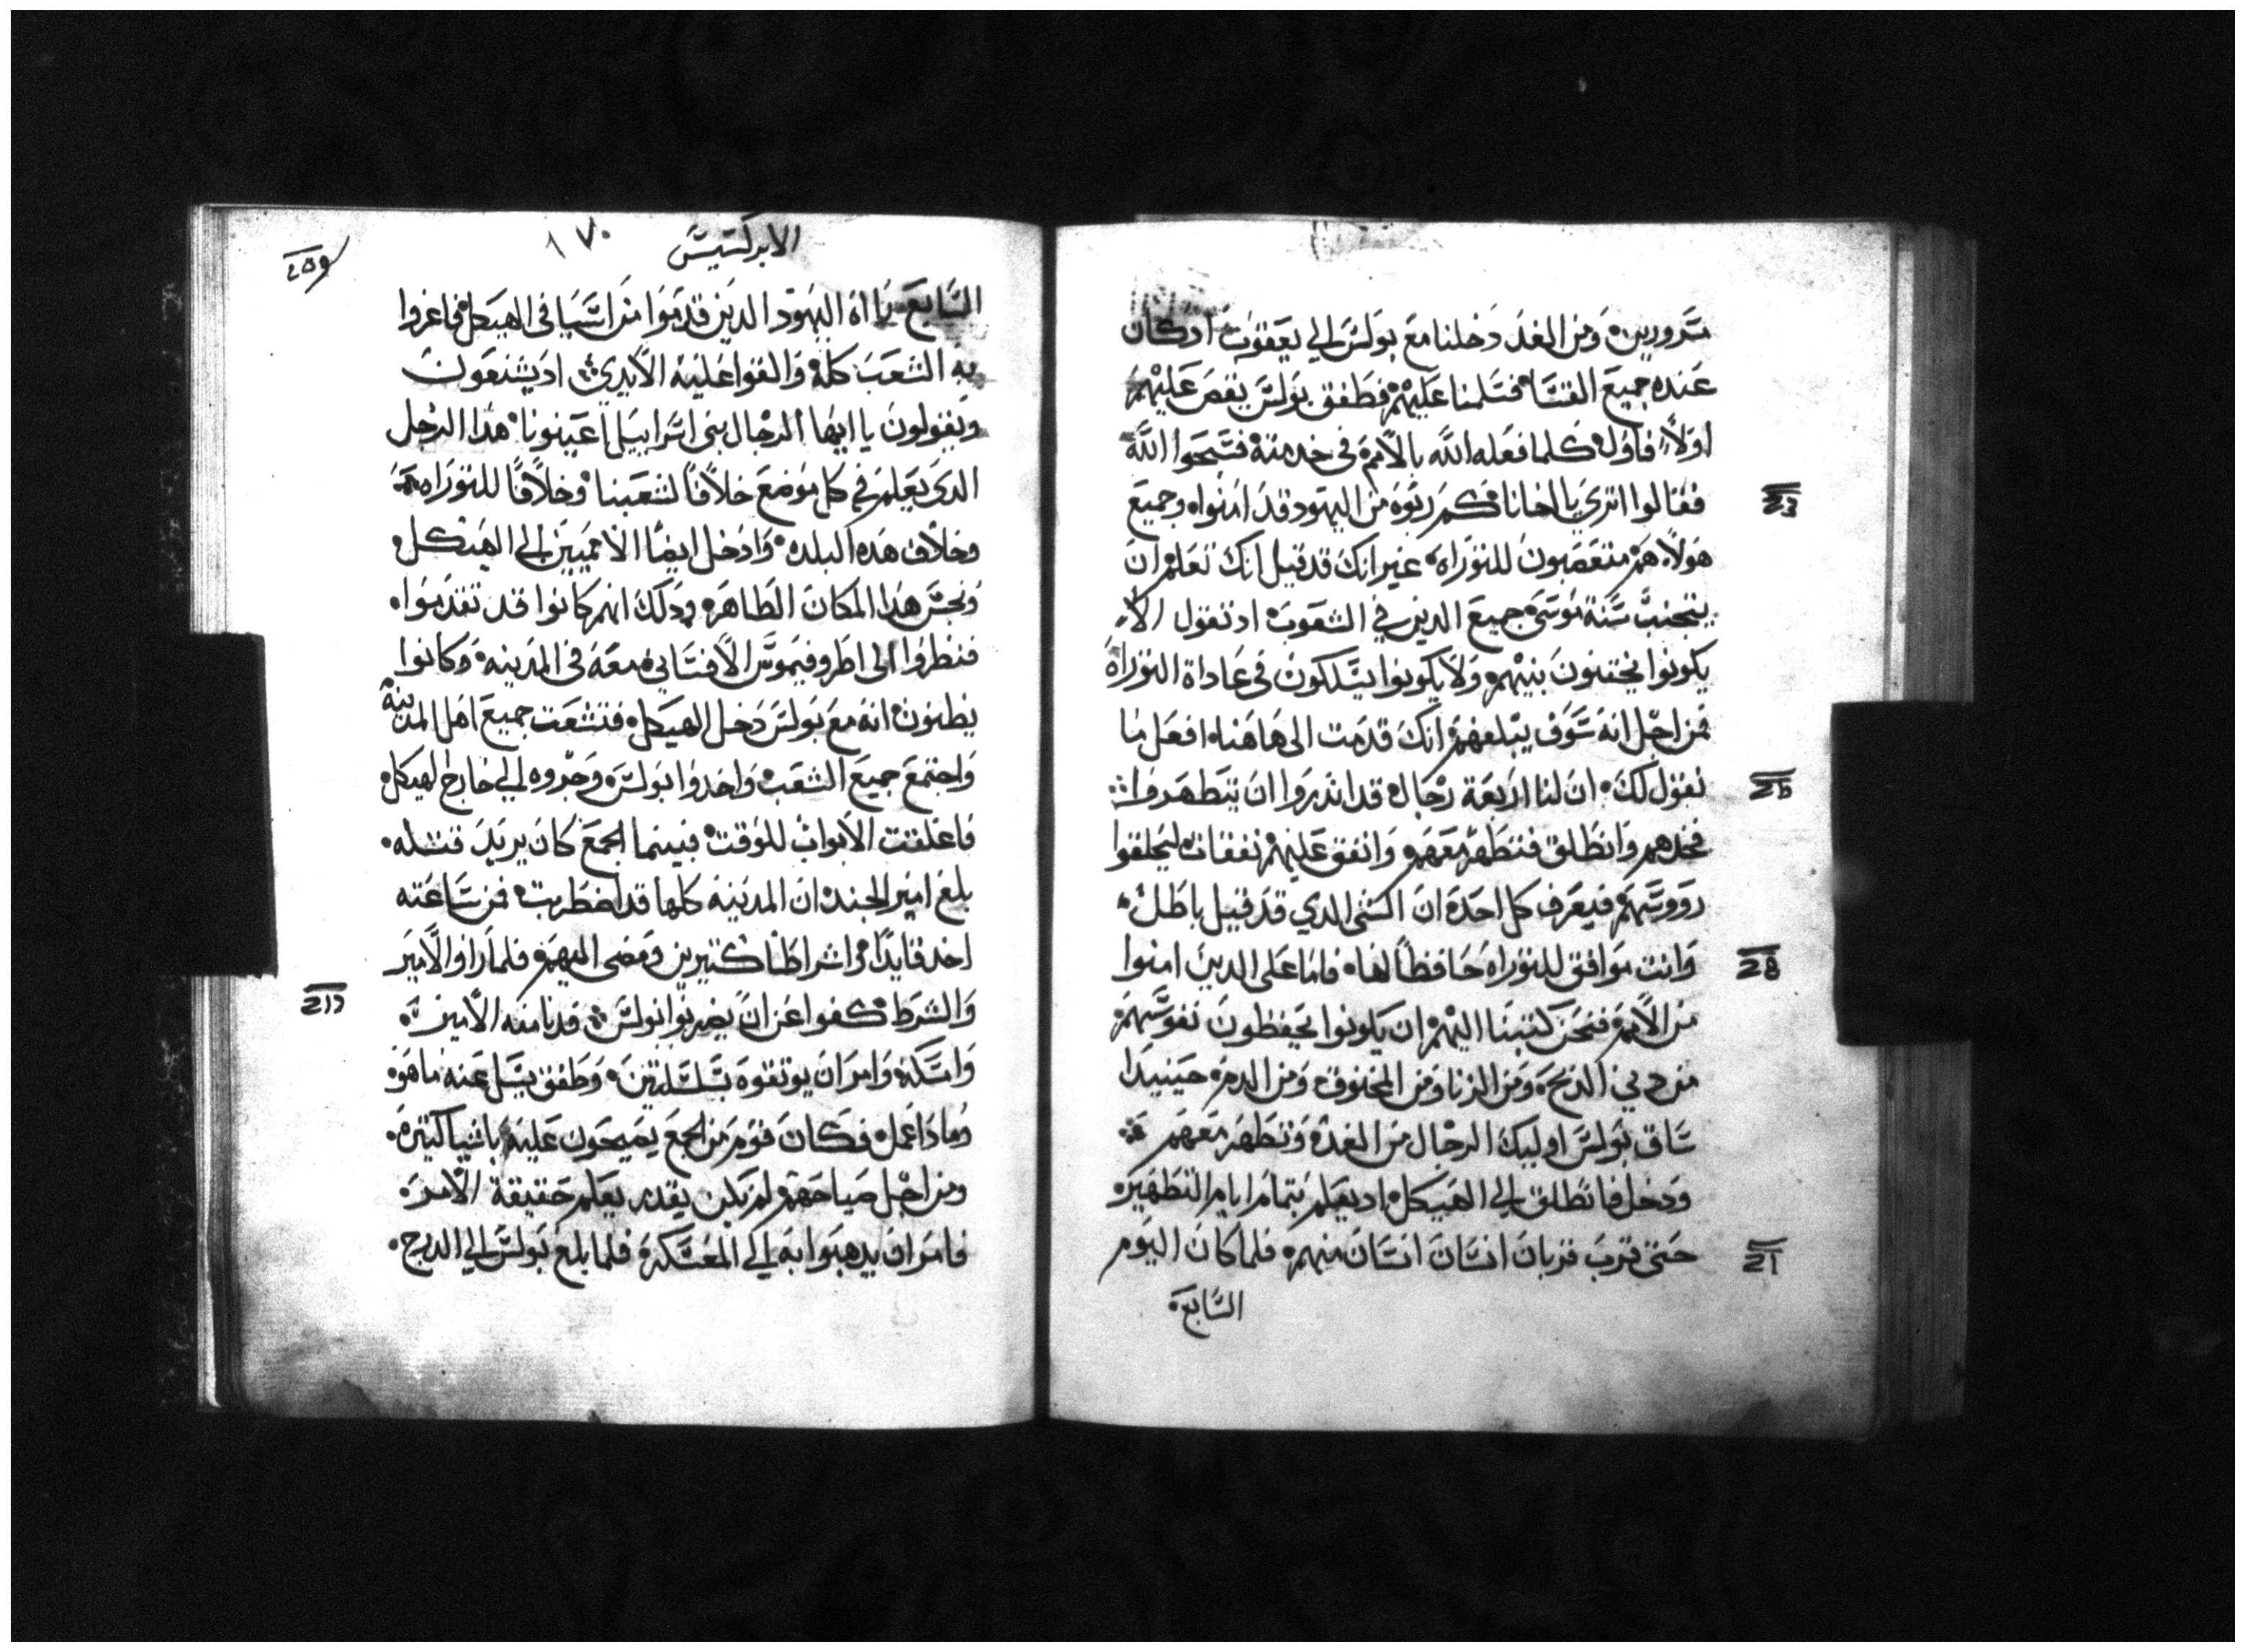 مسرورين ومن الغد دخلنا مع بولس الي يعقوب ادكان
عنده جميع القسا فسلمنا عليهم فطفق بولس يقص عليهم
اولاً فاول كلما فعله الله بالامم في خدمته فسبحوا الله
فقالوا اتري يا اخانا كم ربوه من اليهود قد امنوا وجميع
هولاء هم متعصبون للتوراه غير انك قد قيل انك تعلم ان
يتجنب سنة موسي جميع الدين في الشعوب اد تقول الا
يكونوا يختنون بنيهم ولا يكونوا يسلكون في عاداة التوراة
فمن اجل انه سوف يبلغهم انك قدمت الي هاهنا افعل ما
نقول لك ان لنا اربعة رجال قد اندروا ان يتطهروا
فخدهم وانطلق فتطهر معهم وانفق عليهم نفقات ليحلقوا
رووسهم فيعرف كل احد ان الشي الدي قد قيل باطل
وانت موافق للتوراه حافظاً لها فاما علي الدين امنوا
من الامم فنحن كتبنا اليهم ان يكونوا يحفظون نفوسهم
من دبح الدبحه ومن الزنا ومن المخنوق ومن الدم حينيدا
ساق بولس اوليك الرجال من الغد وتطهر معهم
ودخل فانطلق الي الهيكل اد يعلم بتمام ايام التطهير
حتي قرب قربان انسان انسان منهم فلما كان اليوم
السابع
الابركسيس
١٧٠
السابع رااه اليهود الدين قدموا من اسيا في الهيكل فاغروا
به الشعب كله والقوا عليه الايدي اد يشنعون
ويقولون يا ايها الرجال بني اسراييل اعينونا هدا الرجل
الدي يعلم في كل موضع خلافاً لشعبنا وخلافاً للتوراه
وخلاف هده البلده وادخل ايضا الامميين الي الهيكل
ونجس هدا المكان الطاهر ودلك انهم كانوا قد تقدموا
فنظروا الي اطروفيموس الافساني معه في المدينه وكانوا
يظنون انه مع بولس دخل الهيكل فتشعت جميع اهل المدينة
واجتمع جميع الشعب واخدوا بولس وجروه الي خارج الهيكل
فاغلقت الابواب للوقت فبينما الجمع كان يريد قتله
بلغ امير الجند ان المدينه كلها قد اضطربت فمن ساعته
اخد قايداً واشراطاً كتيرين ومضي اليهم فلما راوا الامير
والشرط كفوا عن ان يضربوا بولس فدنا منه الامير
وامسكه وامر ان يوتقوه بسلسلتين وطفق يسل عنه ما هو
وما دا عمل فكان قوم من الجمع يصيحون عليه باشيا كتيره
ومن اجل صياحهم لم يكن يقدر يعلم حقيقة الامر
فامر ان يدهبوا به الي المعسكر فلما بلغ بولس الي الدرج